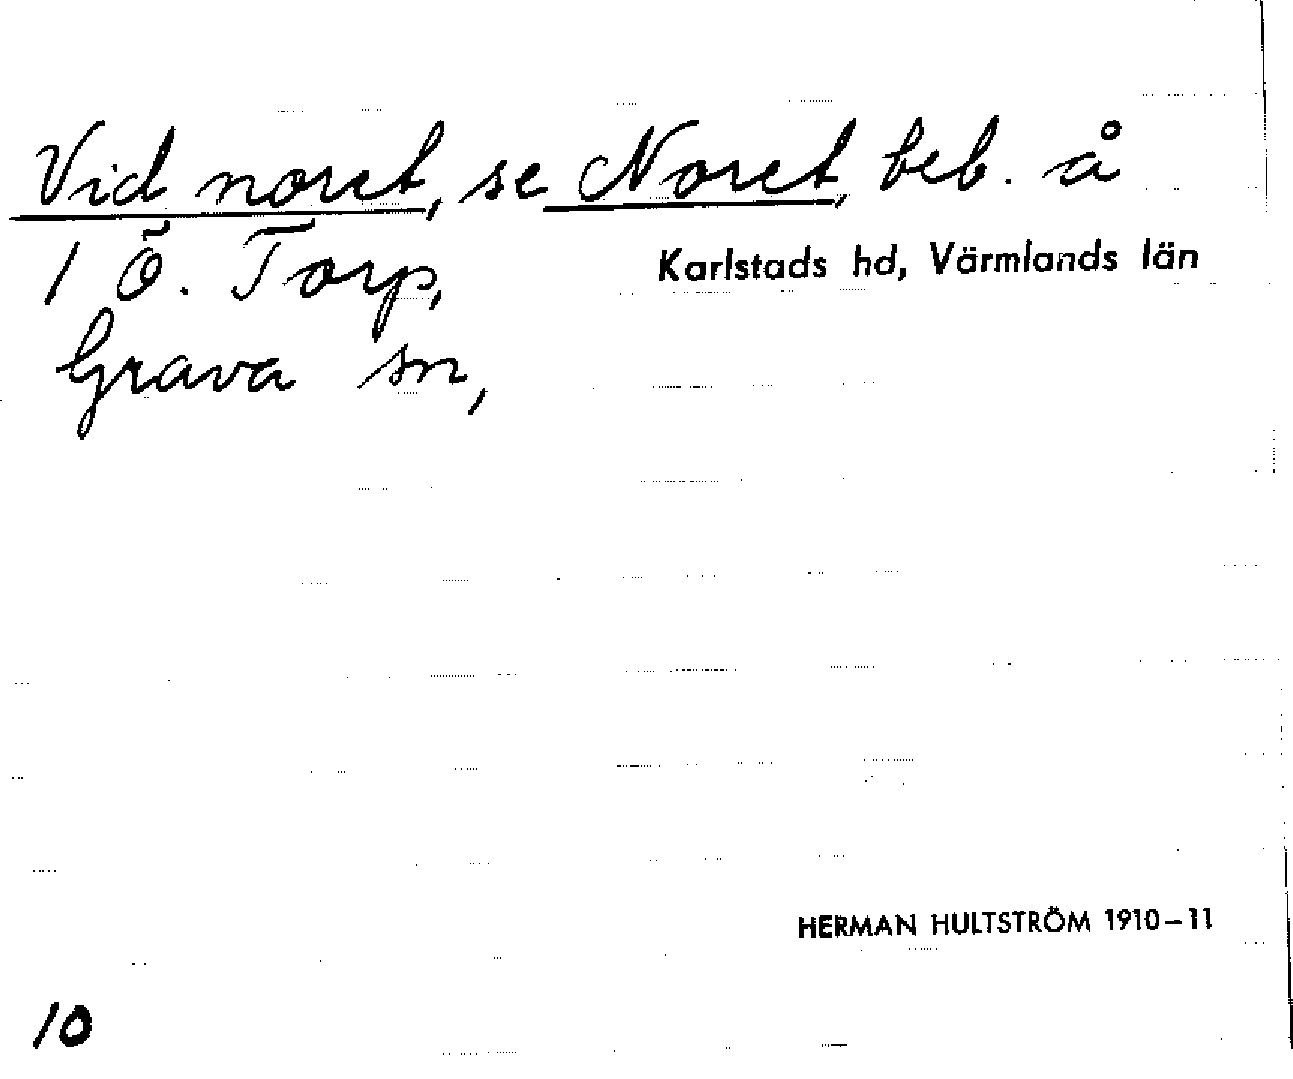 Vid noret, se Noret, beb. å
1 Ö. Torp,
Karlstads hd, Värmlands län
Grava sn,
HERMAN HULTSTRÖM 1910–11
10